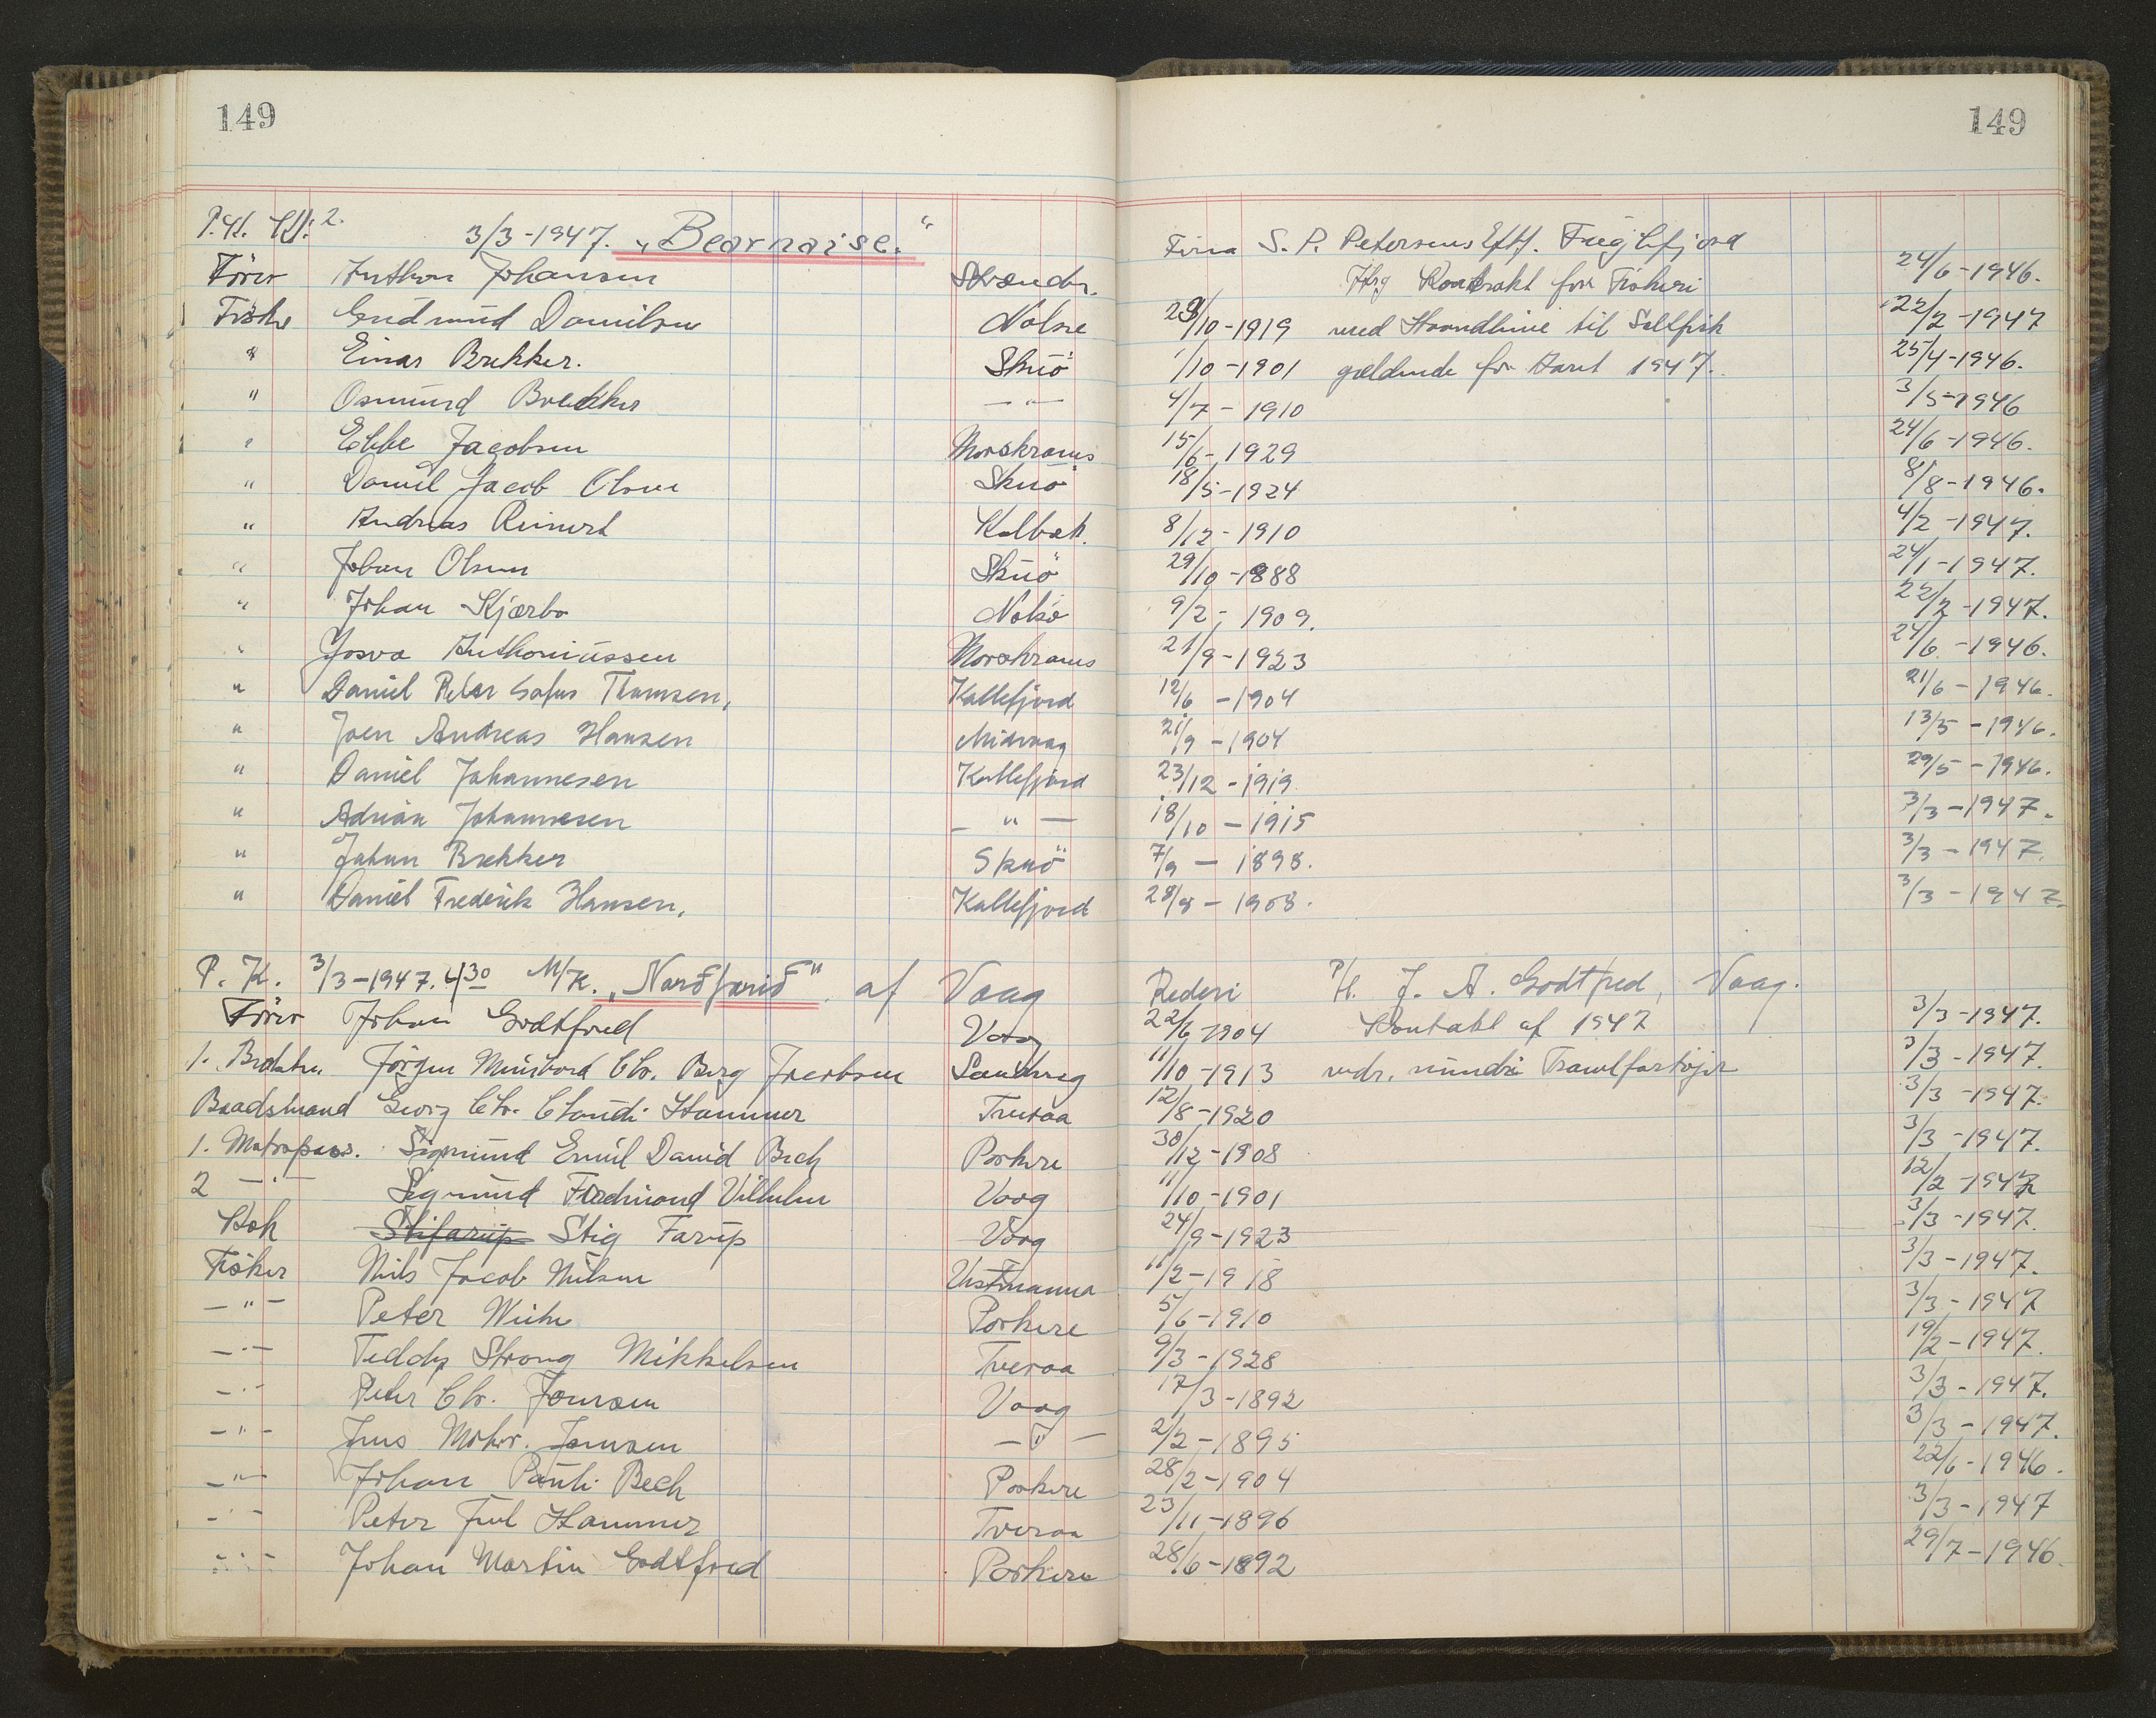 149 149
P.K. Kl: 2. 3/3-1947. „Bearnaise." Firma S. P. Petersens Eftf. Fuglefjord
Förer Anthon Johansen Strænder. Iflg Kontrakt for Fiskeri 24/6-1946.
Fisker Gudmund Danielsen Nolsø 29/10-1919 med Haandline til Saltfisk 22/2-1947
" Einar Brekker. Skuö 1/10-1901 gældende for Aaret 1947. 25/4-1946.
" Osmund Brekker —"— 4/7-1910 3/5-1946
" Ebbe Jacobsen Morskranes 15/6-1929 24/6-1946.
" Daniel Jacob Olsen Skuö 18/5-1924 8/8-1946.
" Andreas Reinert Kalbak. 8/12-1910 4/2-1947.
" Johan Olsen Skuö 29/10-1888 24/1-1947.
" Johan Kjærbo Nolsö 9/2-1909. 22/2-1947.
" Josva Anthoniussen Morskranes 21/9-1923 24/6-1946.
" Daniel Peter Sofus Thomsen, Kallefjord 12/6-1904 21/6-1946.
" Joen Andreas Hansen Midvaag 21/9-1904 13/5-1946.
" Daniel Johannesen Kallefjord 23/12-1919 29/5-1946.
" Adrian Johannesen —"— 18/10-1915 3/3-1947.
" Johan Brekker Skuö 7/9-1898. 3/3-1947.
" Daniel Frederik Hansen, Kallefjord 28/8-1908. 3/3-1947.
P. K. 3/3-1947. 4 30 M/K. „Nordfarid" af Vaag Rederi P/R. J. A. Godtfred, Vaag.
Förer Johan Godtfred Vaag 22/6-1904 Kontrakt af 1947 3/3-1947.
1. Bedstm. Jörgen Meinhard Chr. Berg Jacobsen Sandvig 11/10-1913 vedr. mindre Trawlfartøjer 3/3-1947.
Baadsmand Georg Chr. Claudi Hammer Tveraa 12/8-1920 3/3-1947.
1. Motorpass. Sigmund Emil David Bech Porkere 30/12-1908 3/3-1947.
2 —"— Sigmund Ferdinand Vilhelm Vaag 11/10-1901 12/2-1947
Kok Stifarup Stig Farup Vaag 24/9-1923 3/3-1947.
Fisker Niels Jacob Nielsen Vestmanna 11/2-1918 3/3-1947.
—"— Peter Weihe Porkere 5/6-1910 3/3-1947
—"— Teddy Strong Mikkelsen Tveraa 9/3-1928 19/2-1947.
—"— Peter Chr. Joensen Vaag 17/3-1892 3/3-1947.
—"— Jens Mohr. Joensen —"— 2/2-1895 3/3-1947.
—"— Johan Pauli Bech Porkere 28/2-1904 22/6-1946.
—"— Peter Juul Hammer Tveraa 23/11-1896 3/3-1947
—"— Johan Martin Godtfred Porkere 28/6-1892 29/7-1946.